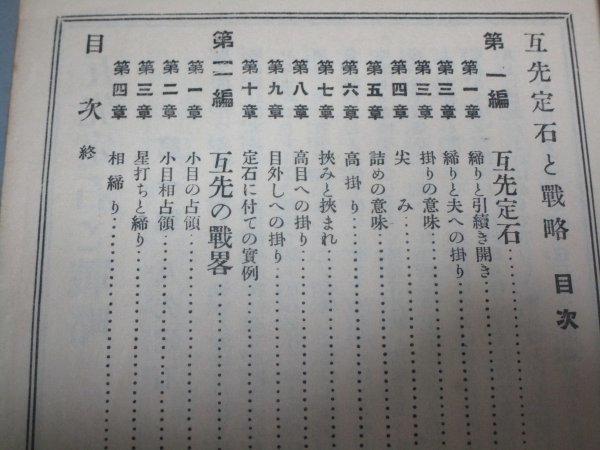 互先定石と戰略 目次
第一編 互先定石
第一章 締りと引續き開き
第三章 締りと夫への掛り
第三章 掛りの意味
第四章 尖み
第五章 詰めの意味
第六章 高掛り
第七章 挾みと挾まれ
第八章 高目への掛り
第九章 目外しへの掛り
第十章 定石に付ての實例
第二編 互先の戰畧
第一章 小目の占領
第二章 小目相占領
第三章 星打ちと締り
第四章 相締り
目次 終